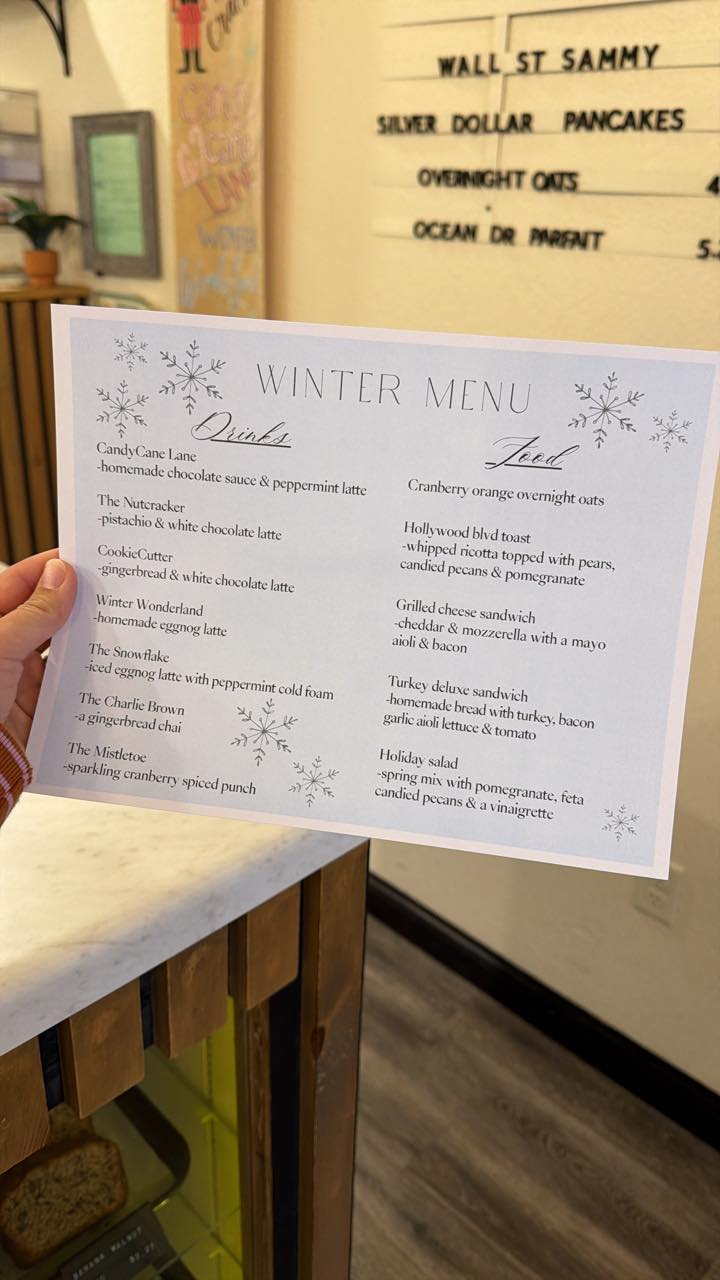 Candy
Cane
LANE
WINTER
WALL ST SAMMY
SILVER DOLLAR PANCAKES
OVERNIGHT OATS 4
OCEAN DR PARFAIT 5.
WINTER MENU
Drinks
CandyCane Lane
-homemade chocolate sauce & peppermint latte
The Nutcracker
-pistachio & white chocolate latte
CookieCutter
-gingerbread & white chocolate latte
Winter Wonderland
-homemade eggnog latte
The Snowflake
-iced eggnog latte with peppermint cold foam
The Charlie Brown
-a gingerbread chai
The Mistletoe
-sparkling cranberry spiced punch
Food
Cranberry orange overnight oats
Hollywood blvd toast
-whipped ricotta topped with pears,
candied pecans & pomegranate
Grilled cheese sandwich
-cheddar & mozzerella with a mayo
aioli & bacon
Turkey deluxe sandwich
-homemade bread with turkey, bacon
garlic aioli lettuce & tomato
Holiday salad
-spring mix with pomegranate, feta
candied pecans & a vinaigrette
BANANA WALNUT